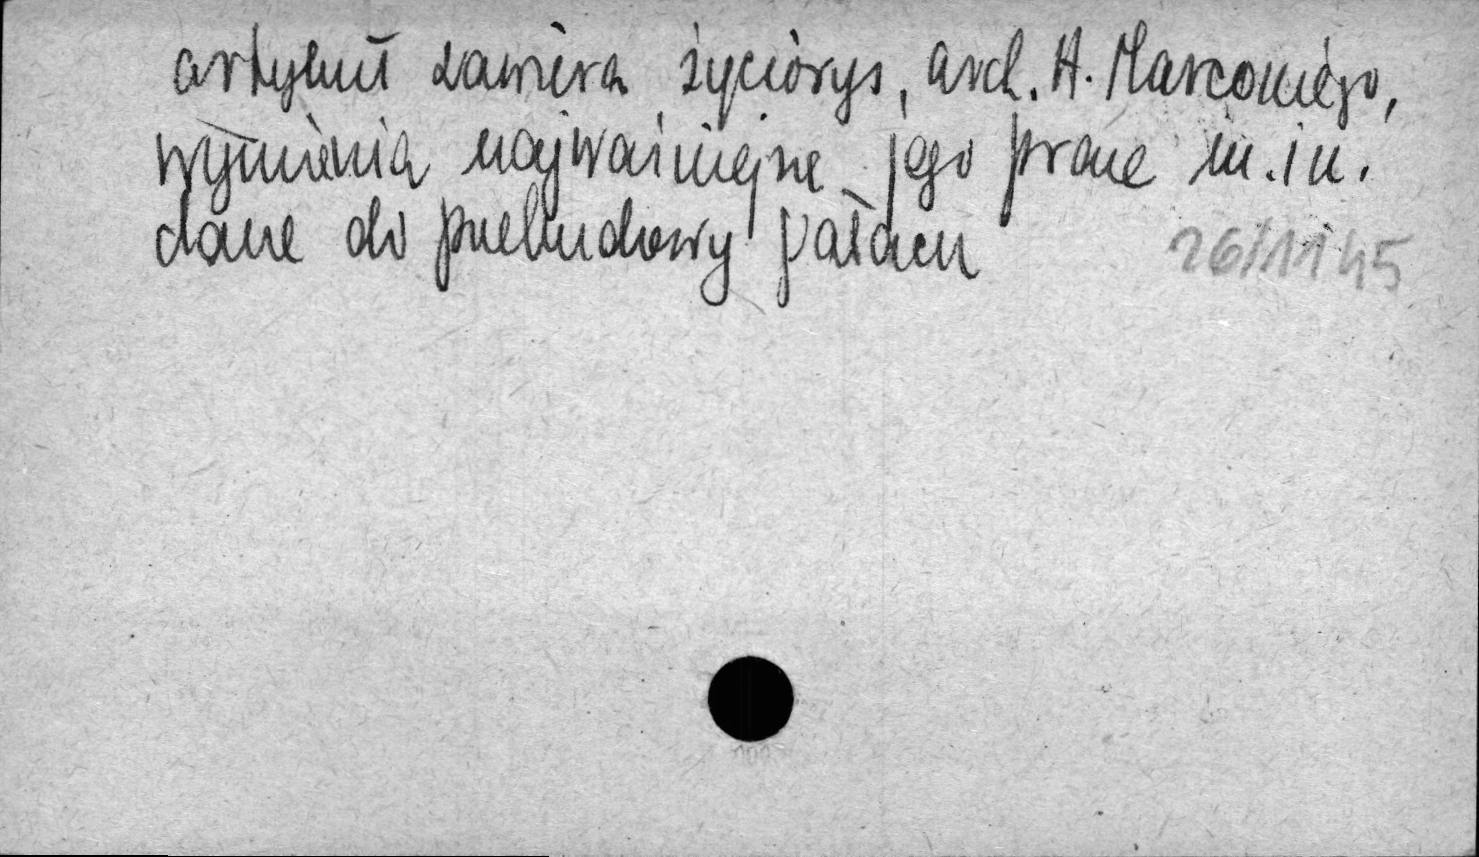 artykuł zawiera życiorys, arch. H. Marconiego,
wymienia najważniejsze jego prace m.in.
dane do przebudowy pałacu
26/11 45